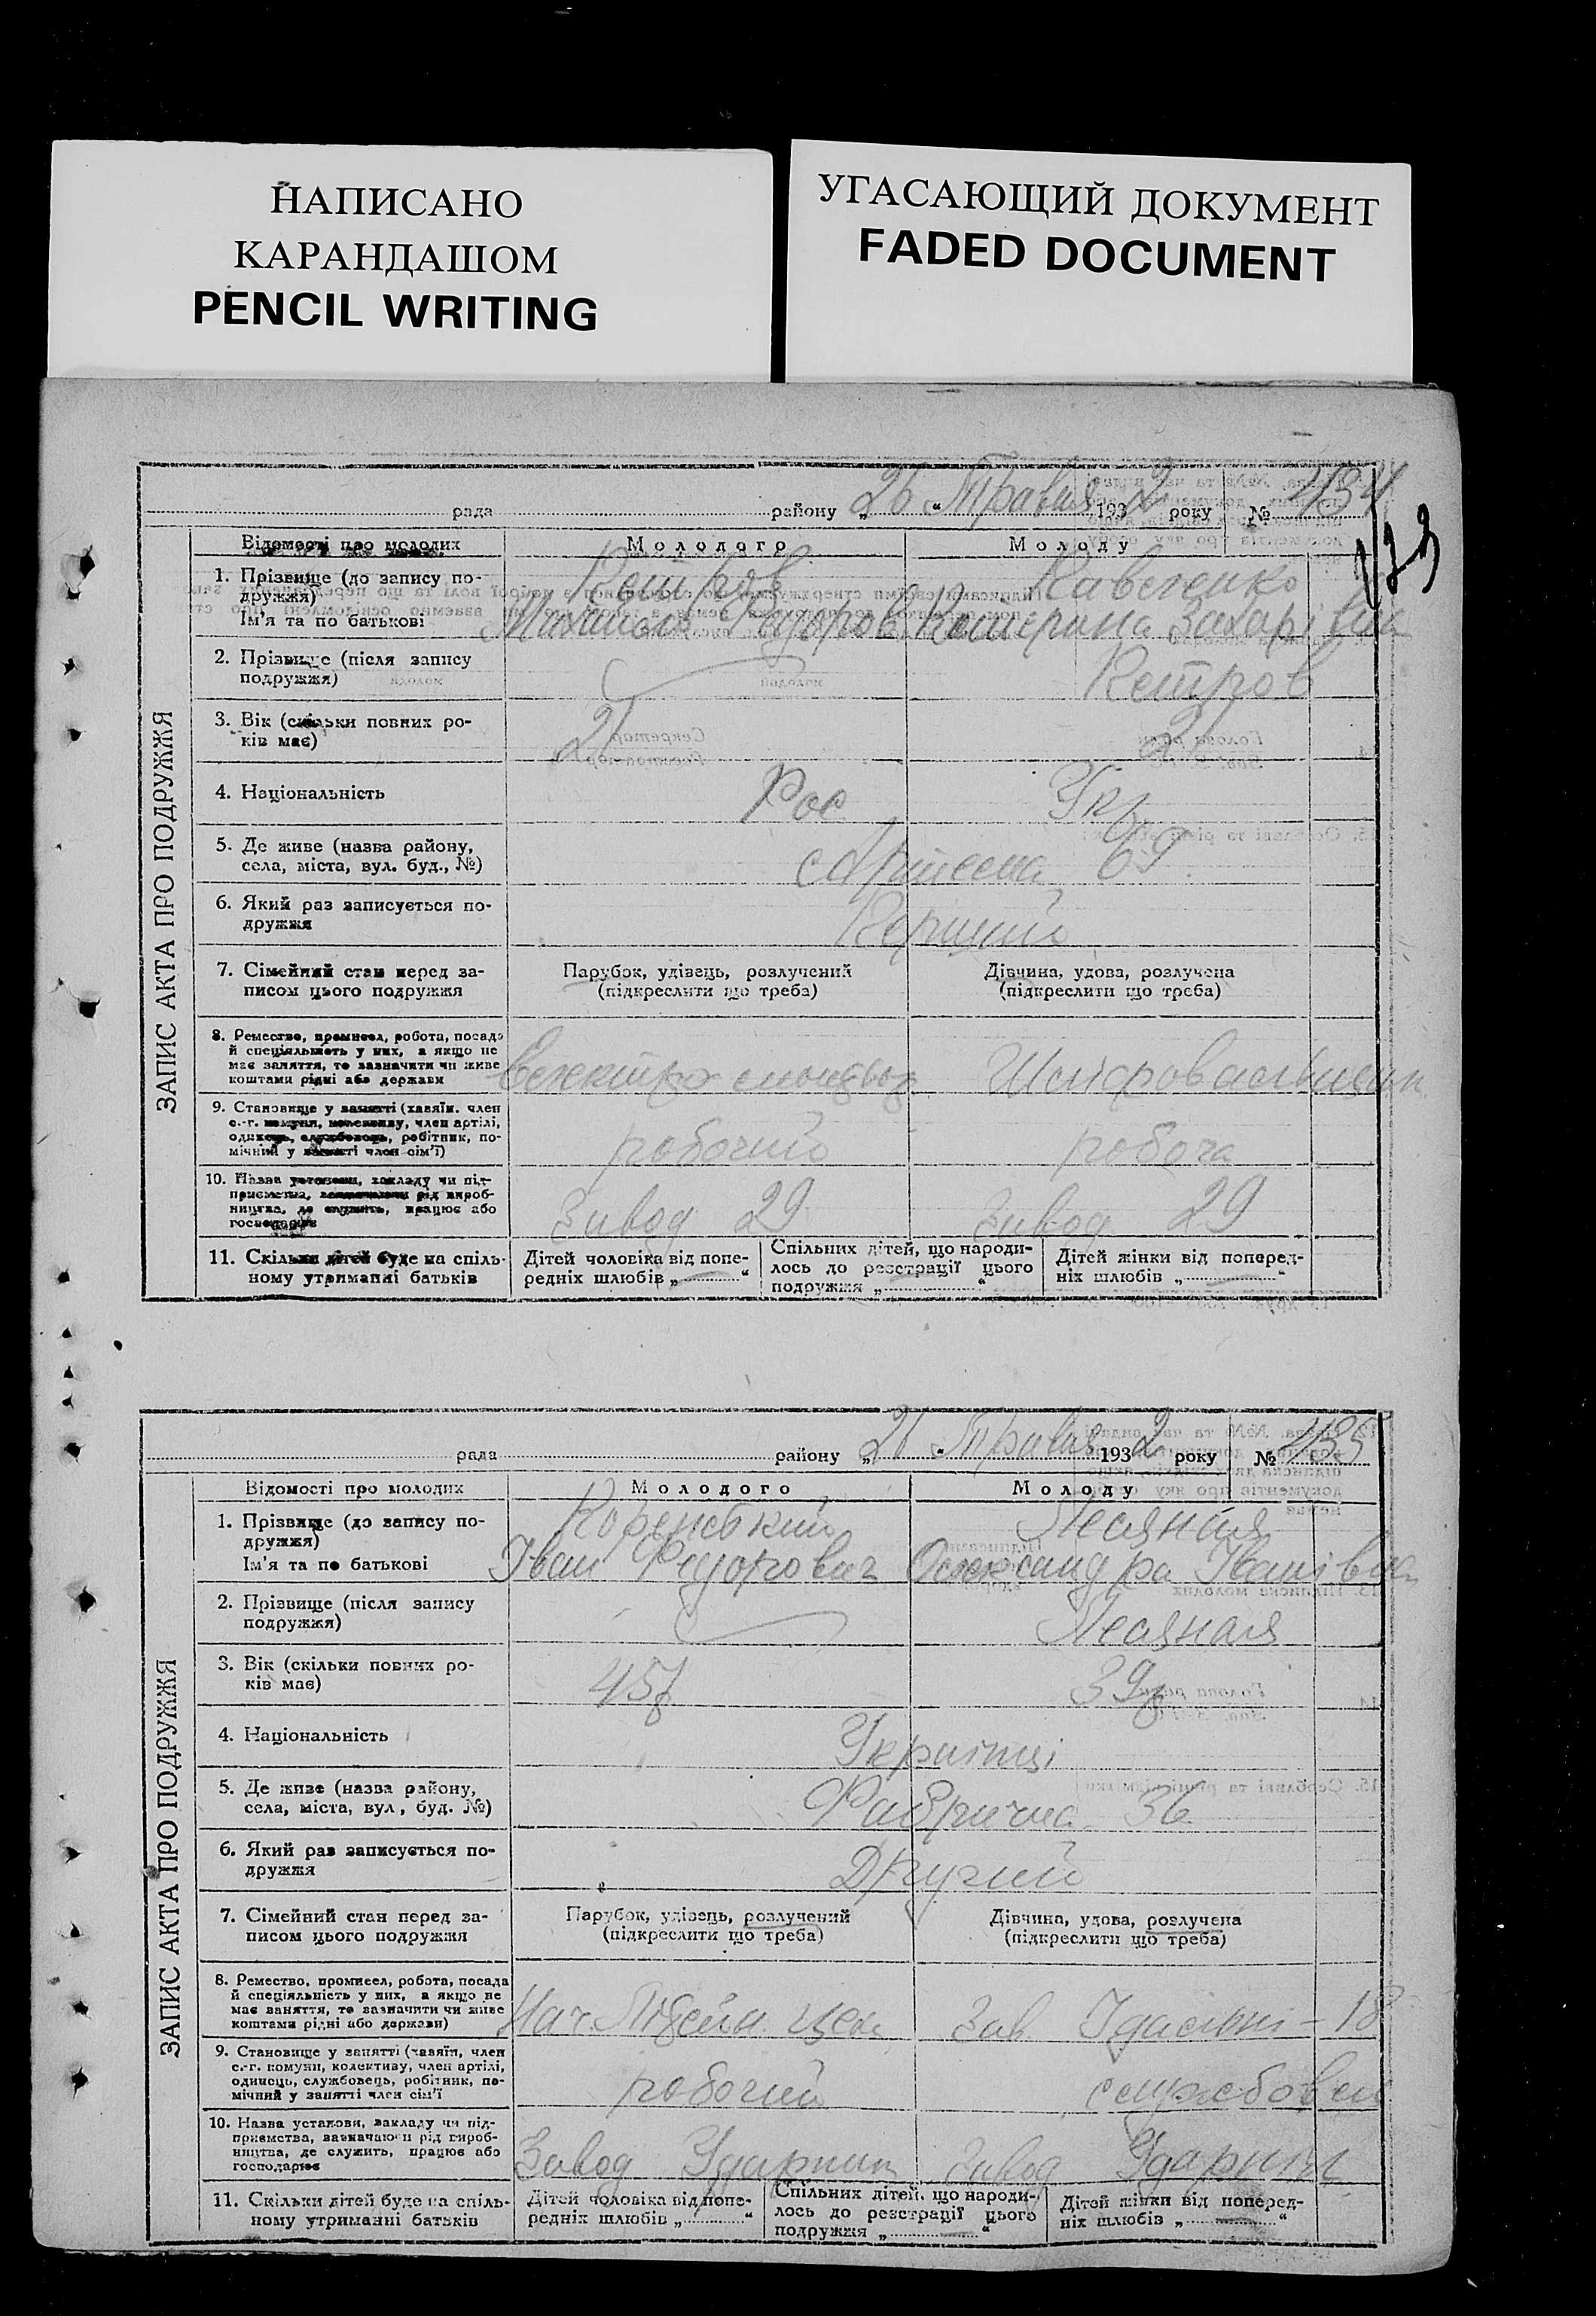 НАПИСАНО
КАРАНДАШОМ
PENCIL WRITING
УГАСАЮЩИЙ ДОКУМЕНТ
FADED DOCUMENT
рада району „26“ Травня 1932 року № 434
173
ЗАПИС АКТА ПРО ПОДРУЖЖЯ
Відомості про молодих Молодого Молоду
1. Прізвище (до запису по-
дружжя) Петров Кавсненко
Ім'я та по батькові Михайло Федоров Катерина Захарівна
2. Прізвище (після запису
подружжя) Петров
3. Вік (скільки повних ро-
ків має) 21 21
4. Національність Рос Укр
5. Де живе (назва району,
села, міста, вул. буд., №) Артема 69
6. Який раз записується по-
дружжя Перший
7. Сімейний стан перед за-
писом цього подружжя
Парубок, удівець, розлучений
(підкреслити що треба)
Дівчина, удова, розлучена
(підкреслити що треба)
8. Ремество, промисел, робота, посада
й спеціяльність у них, а якщо не
має заняття, то зазначити чи живе
коштами рідні або держави
Шліфовальщик
9. Становище у занятті (хазяїн, член
с.-г. комуни, колективу, член артілі,
одинець, службовець, робітник, по-
мічний у занятті член сім'ї)
робочий робоча
10. Назва установи, закладу чи під-
приємства, зазначаючи рід вироб-
ництва, де служить, працює або
господарює
Завод 29 Завод 29
11. Скільки дітей буде на спіль-
ному утриманні батьків
Дітей чоловіка від попе-
редніх шлюбів „ “
Спільних дітей, що народи-
лось до реєстрації цього
подружжя „ “
Дітей жінки від поперед-
ніх шлюбів „ “
рада району „26“ Травня 1932 року № 435
ЗАПИС АКТА ПРО ПОДРУЖЖЯ
Відомості про молодих Молодого Молоду
1. Прізвище (до запису по-
дружжя) Коренський Лесяная
Ім'я та по батькові Іван Федорович Олександра Іванівна
2. Прізвище (після запису
подружжя) Лесяная
3. Вік (скільки повних ро-
ків має) 45 39
4. Національність Українці
5. Де живе (назва району,
села, міста, вул, буд. №) Фабрична 36
6. Який раз записується по-
дружжя Другий
7. Сімейний стан перед за-
писом цього подружжя
Парубок, удівець, розлучений
(підкреслити що треба)
Дівчина, удова, розлучена
(підкреслити що треба)
8. Ремество, промисел, робота, посада
й спеціяльність у них, а якщо не
має заняття, то зазначити чи живе
коштами рідні або держави)
Нач. Литейн. цех Зав. Їдальні - 18
9. Становище у занятті (хазяїн, член
с.-г. комуни, колективу, член артілі,
одинець, службовець, робітник, по-
мічний у занятті член сім'ї
робочий службовец
10. Назва установи, закладу чи під-
приємства, зазначаючи рід вироб-
ництва, де служить, працює або
господарює
Завод Ударник Завод Ударник
11. Скільки дітей буде на спіль-
ному утриманні батьків
Дітей чоловіка від попе-
редніх шлюбів „ “
Спільних дітей, що народи-
лось до реєстрації цього
подружжя „ “
Дітей жінки від поперед-
ніх шлюбів „ “